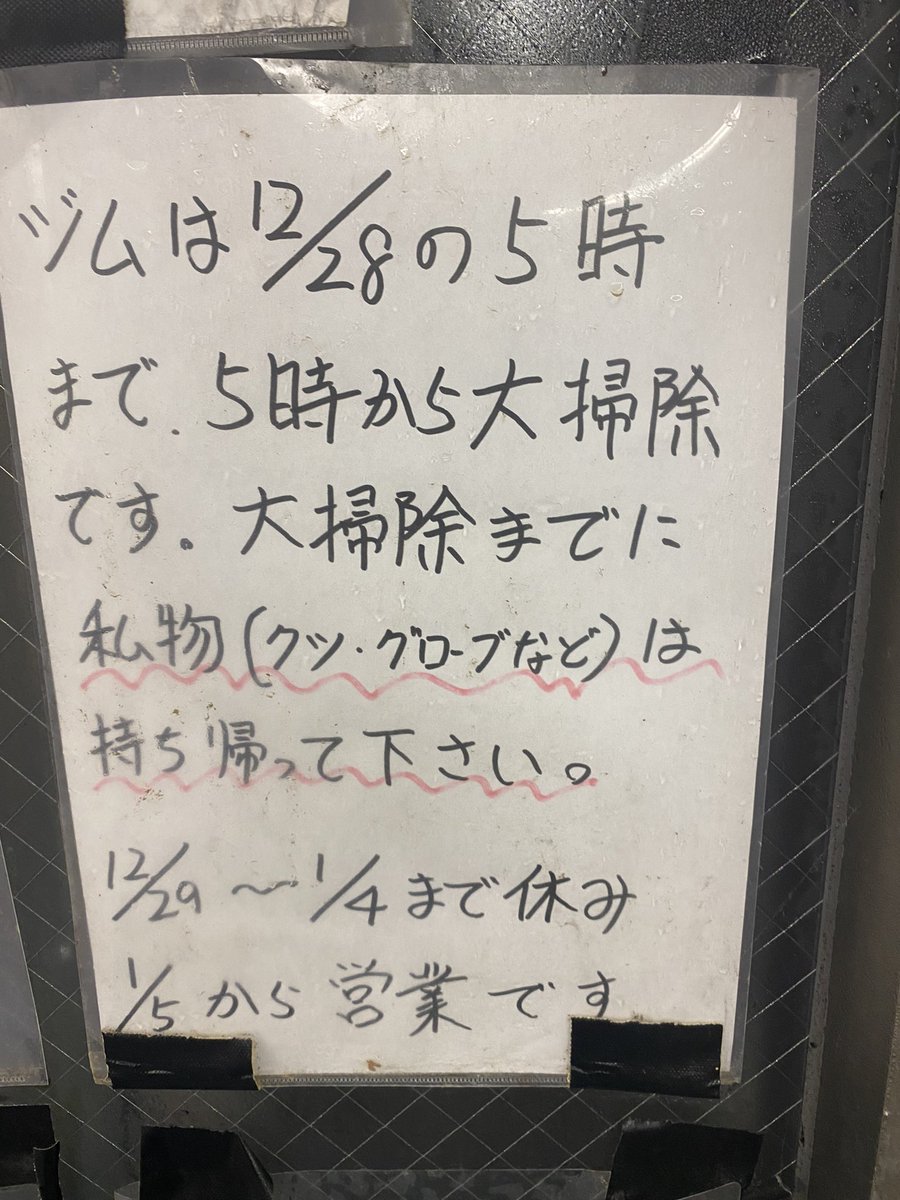 ヅムは12/28の5時
まで. 5時から大掃除
です。大掃除までに
私物(クツ・グローブなど)は
持ち帰って下さい。
12/29～1/4まで休み
1/5から営業です